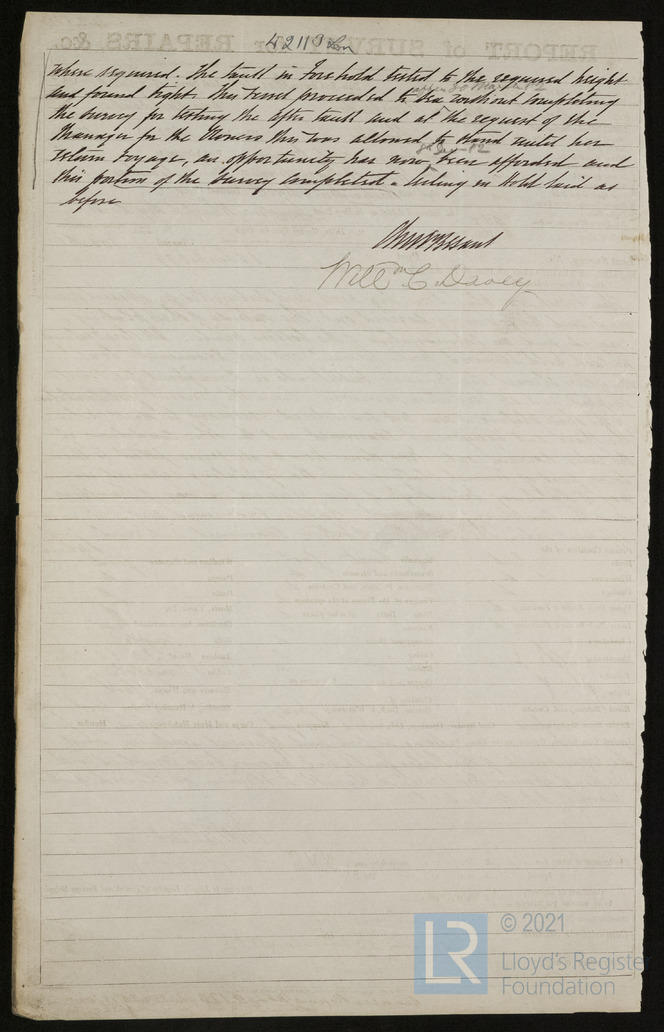 42119 Lon
where required. The tank in Forehold tested to the required height
and found tight. This Vessel proceeded to Sea without completing
the Survey for testing the after tank and at the request of the
Manager for the Owners this was allowed to stand until her
return voyage, an opportunity has now been afforded and
this portion of the Survey Completed. Ceiling in Hold laid as
before
Willm C. Davey
© 2021
LR
Lloyd's Register
Foundation